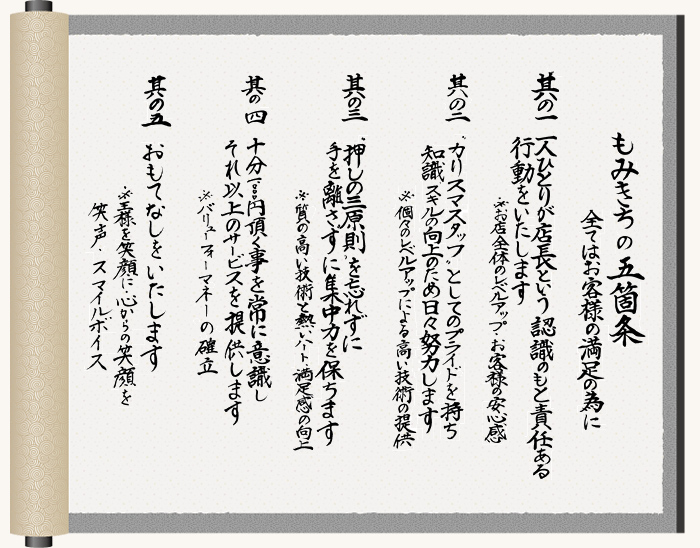 もみきちの五箇条
全てはお客様の満足の為に
其の一
一人ひとりが店長という認識のもと責任ある
行動をいたします
※お店全体のレベルアップ・お客様の安心感
其の二
カリスマスタッフ としてのプライドを持ち
知識 スキルの向上のため日々努力します
※個々のレベルアップによる高い技術の提供
其の三
押しの三原則 を忘れずに
手を離さずに集中力を保ちます
※質の高い技術と熱いハート 満足感の向上
其の四
十分 円頂く事を常に意識し
それ以上のサービスを提供します
※バリューフォーマネーの確立
其の五
おもてなしをいたします
※王様を笑顔に・心からの笑顔を
笑声・スマイルボイス